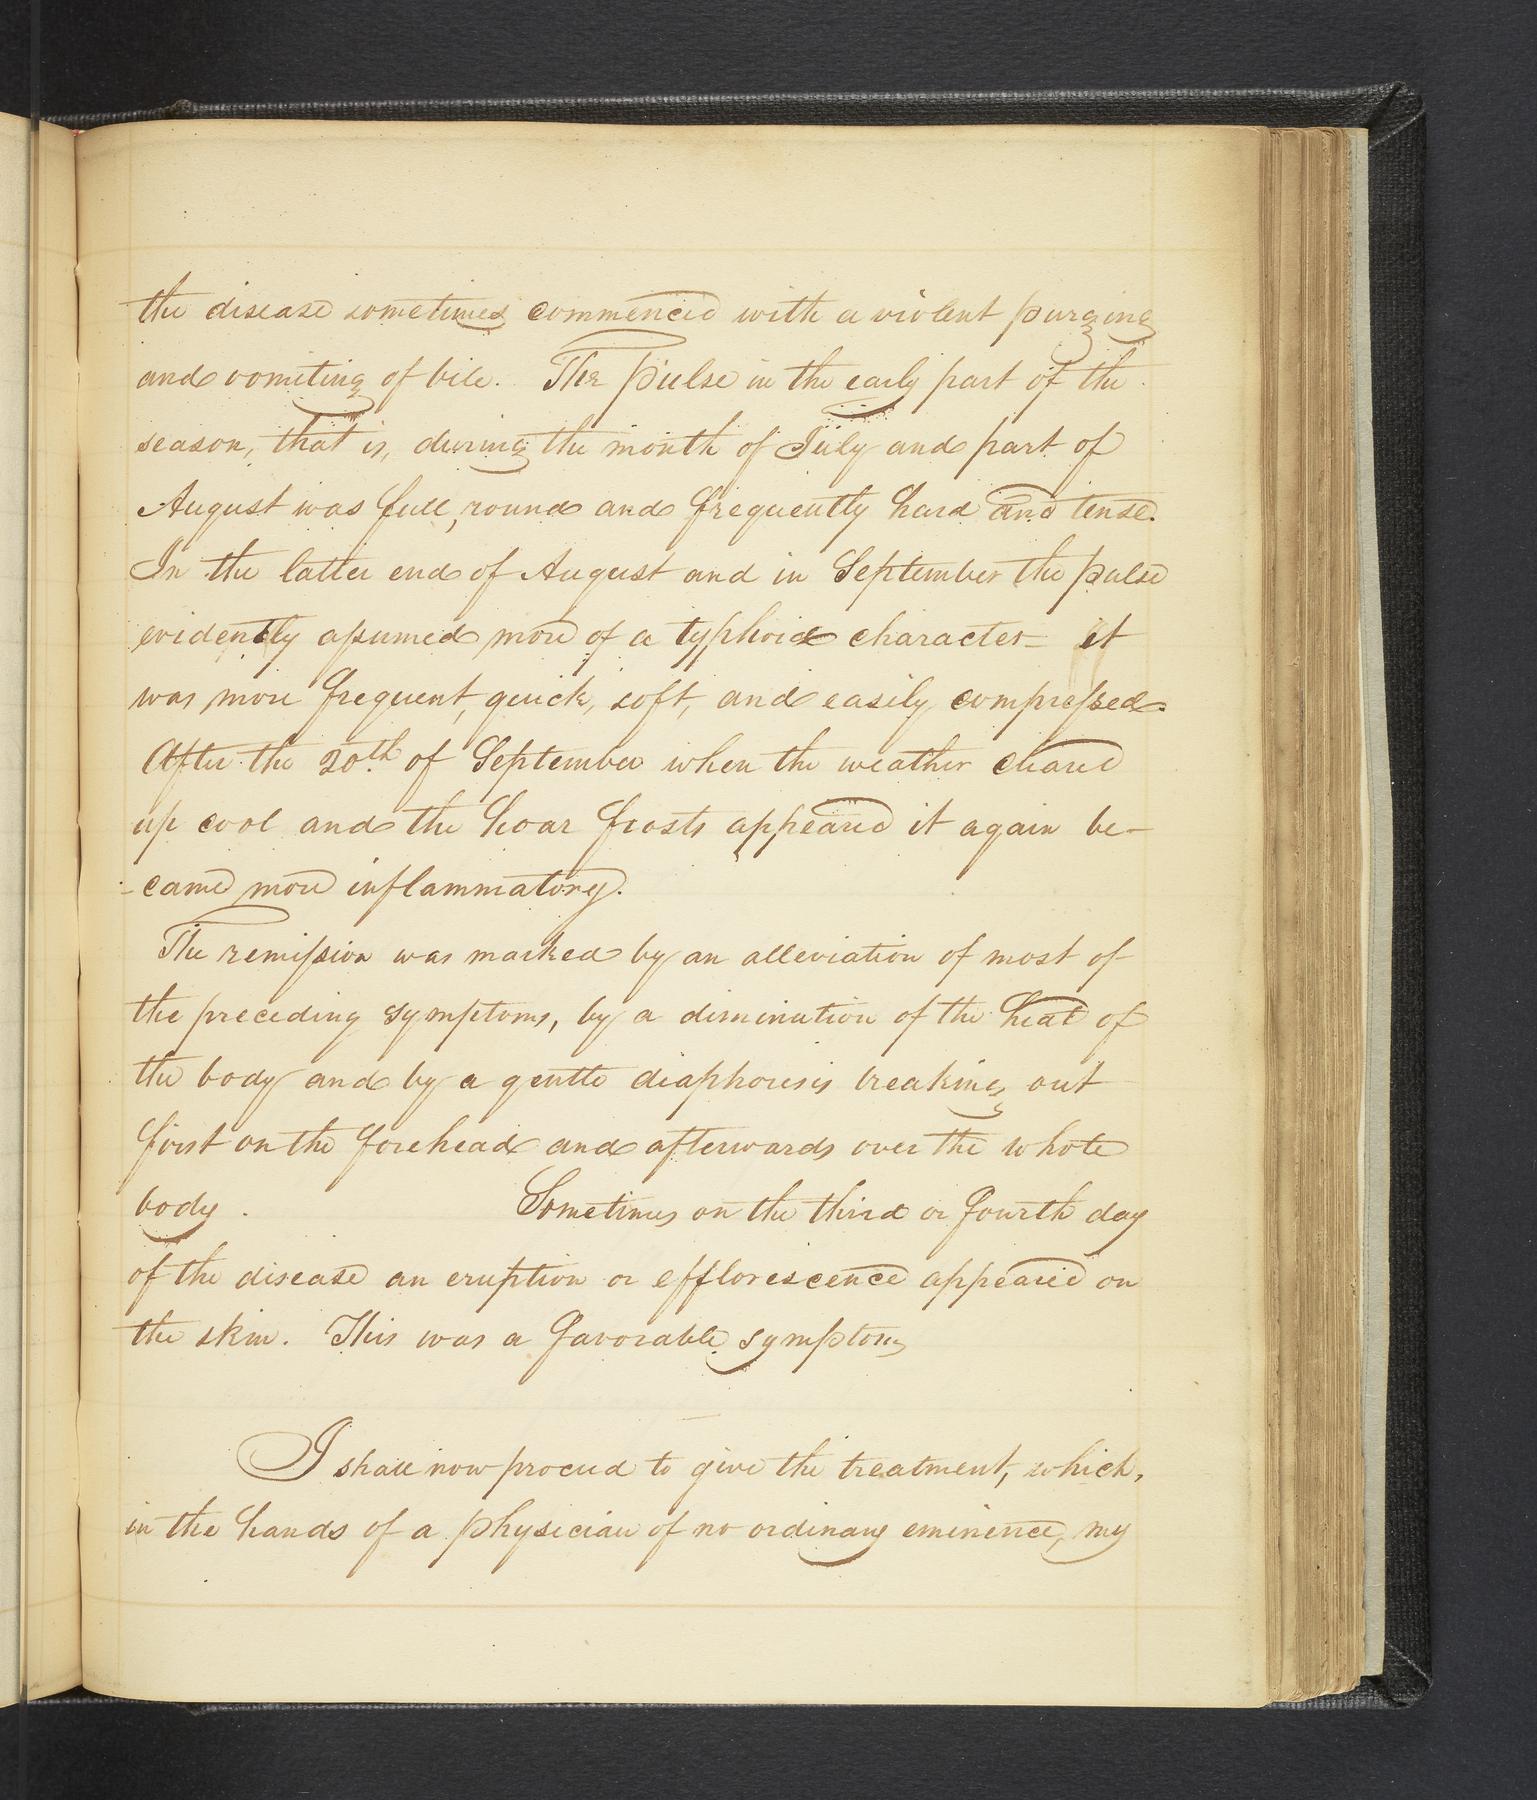 the disease sometimes commenced with a violent purging
and vomiting of bile. The pulse in the early part of the
season, that is, during the month of July and part of
August was full, round and frequently hard and tense.
In the latter end of August and in September the pulse
evidently assumed more of a typhoid character— it
was more frequent, quick, soft, and easily compressed.
After the 20th of September when the weather cleared
up cool and the hoar frosts appeared it again be-
-came more inflammatory.
The remission was marked by an alleviation of most of
the preceding symptoms, by a diminution of the heat of
the body and by a gentle diaphoresis breaking out
first on the forehead and afterwards over the whole
body. Sometimes on the third or fourth day
of the disease an eruption or efflorescence appeared on
the skin. This was a favorable symptom
I shall now proceed to give the treatment, which,
in the hands of a physician of no ordinary eminence, my